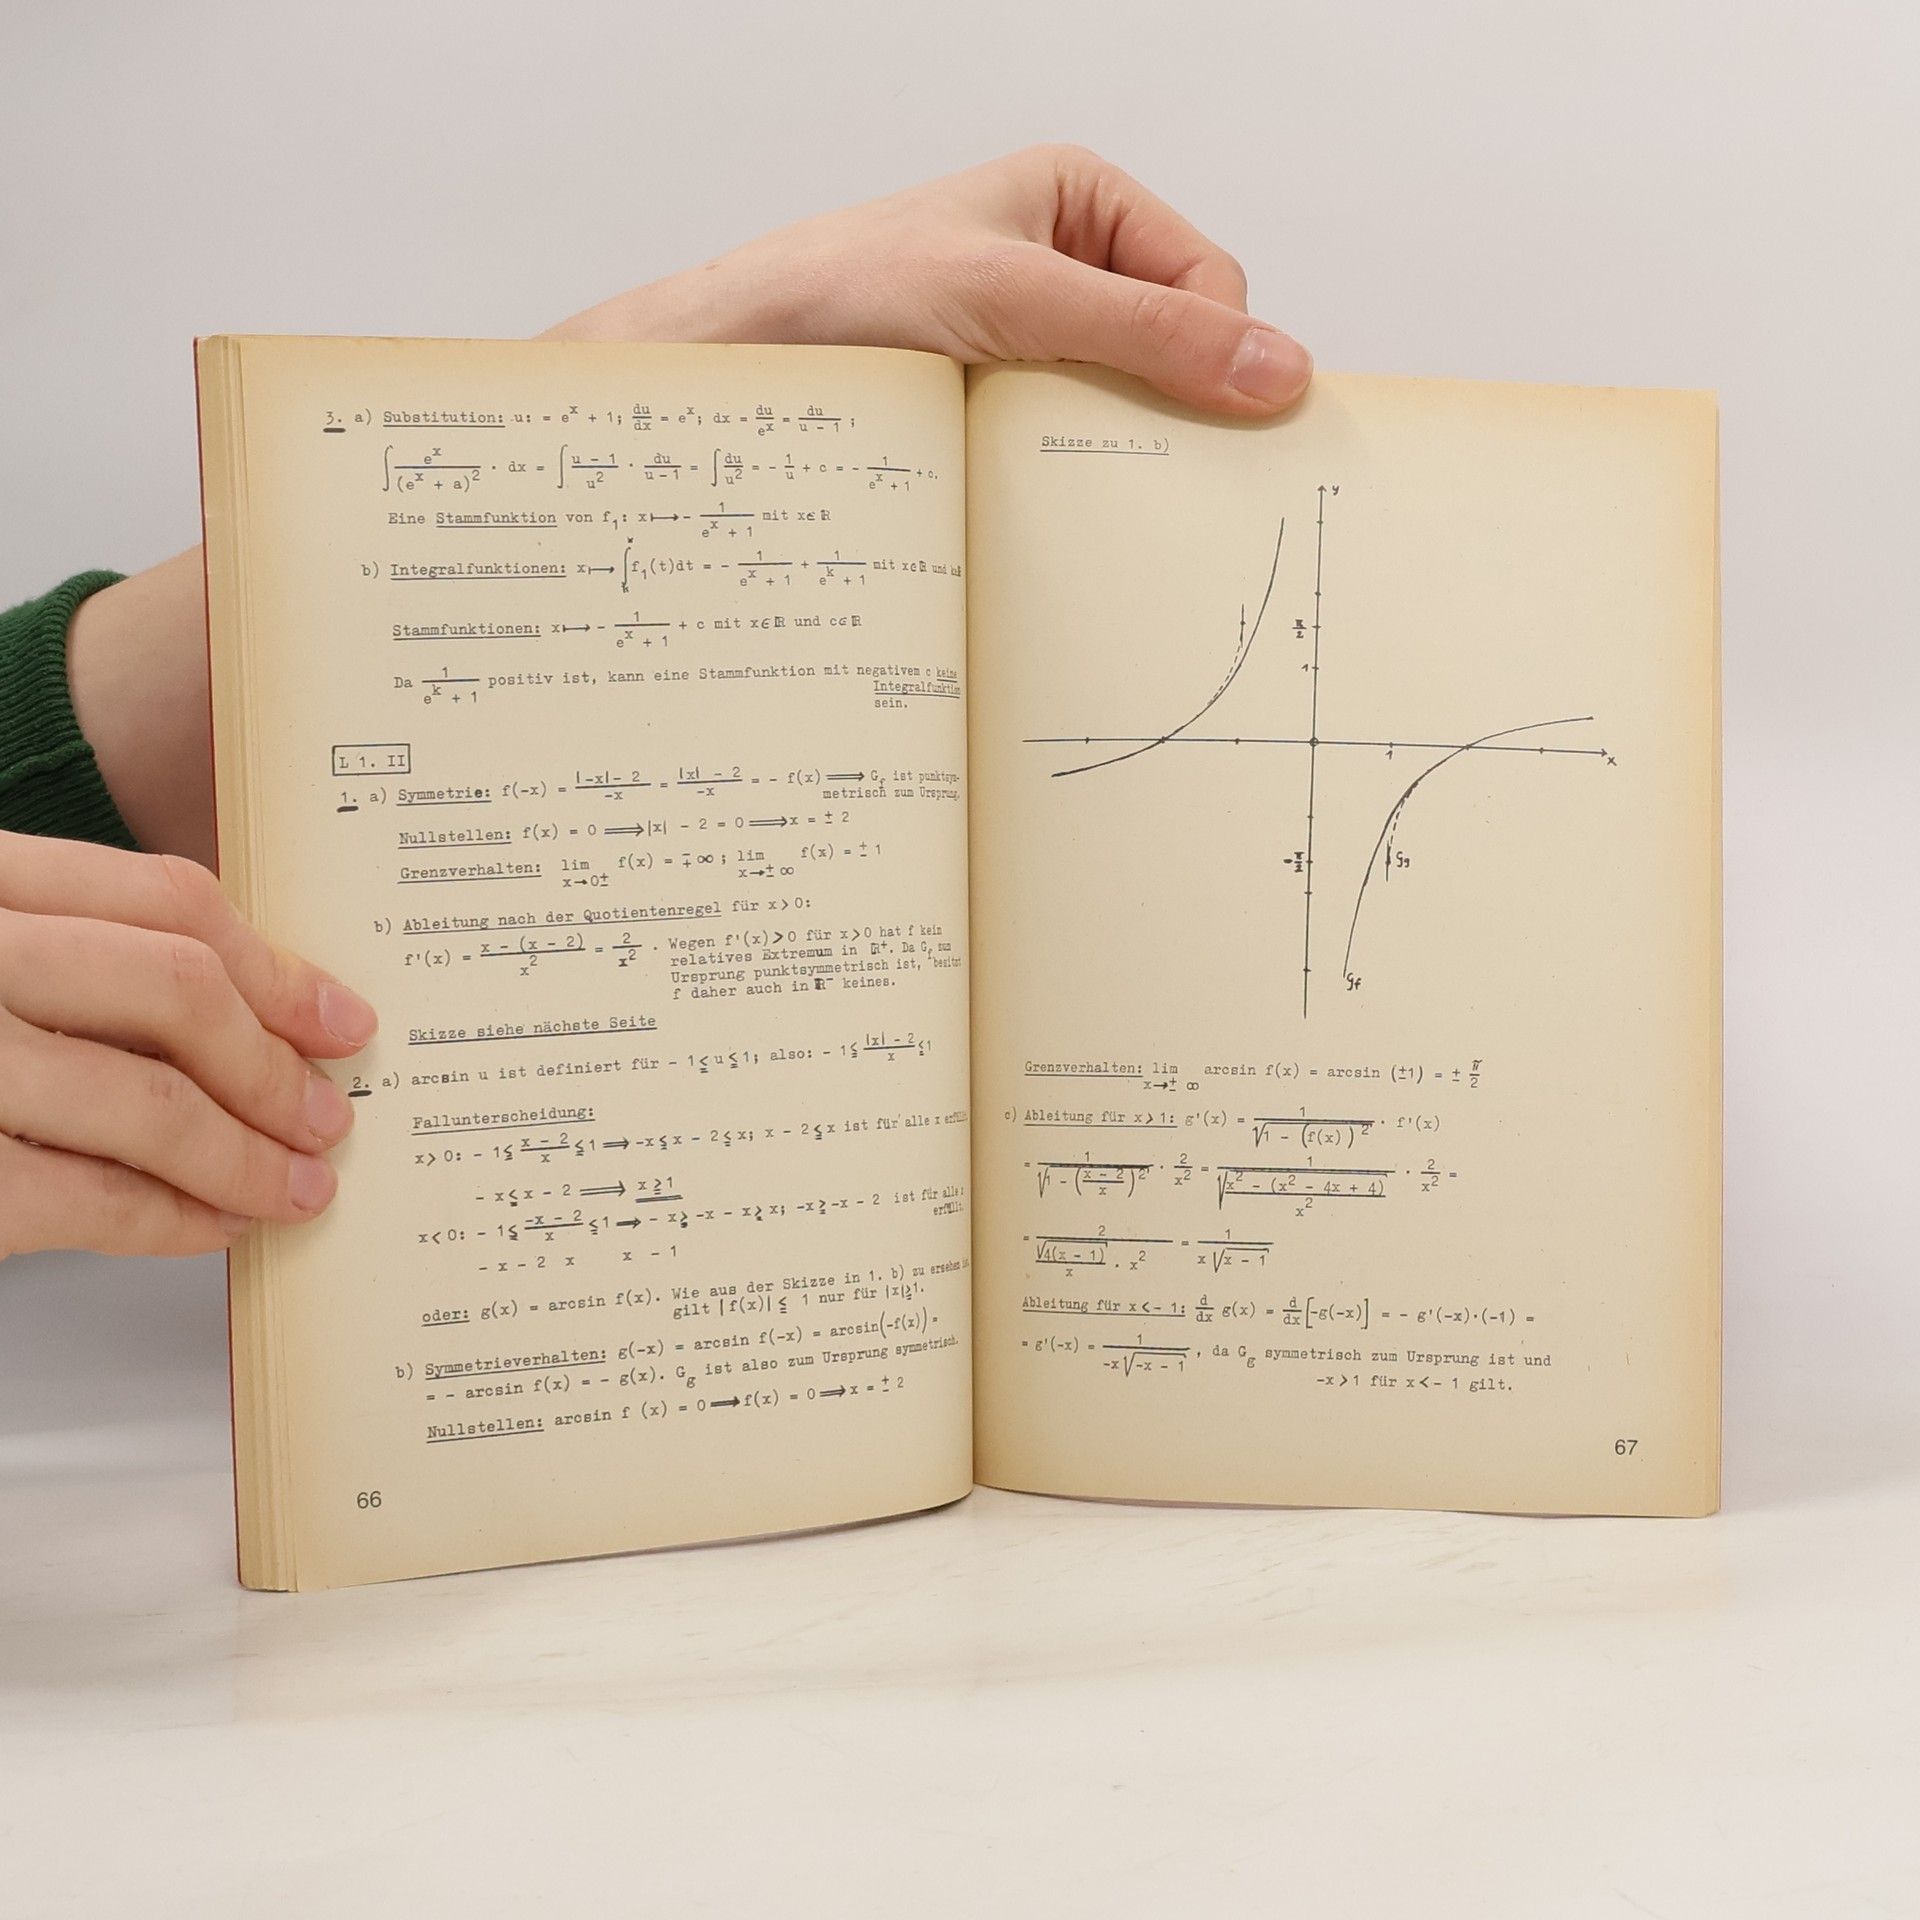 3. a) Substitution: u: = e^x + 1; du/dx = e^x; dx = du/e^x = du/(u - 1) ;
∫ e^x/(e^x + a)^2 · dx = ∫ (u - 1)/u^2 · du/(u - 1) = ∫ du/u^2 = - 1/u + c = - 1/(e^x + 1) + c.
Eine Stammfunktion von f_1: x ↦ - 1/(e^x + 1) mit x∈ℝ
b) Integralfunktionen: x ↦ ∫_k^x f_1(t)dt = - 1/(e^x + 1) + 1/(e^k + 1) mit x∈ℝ und k∈ℝ
Stammfunktionen: x ↦ - 1/(e^x + 1) + c mit x∈ℝ und c∈ℝ
Da 1/(e^k + 1) positiv ist, kann eine Stammfunktion mit negativem c keine
Integralfunktion
sein.
L 1. II
1. a) Symmetrie: f(-x) = (|-x| - 2)/(-x) = (|x| - 2)/(-x) = - f(x) ⟹ G_f ist punktsym-
metrisch zum Ursprung.
Nullstellen: f(x) = 0 ⟹ |x| - 2 = 0 ⟹ x = ± 2
Grenzverhalten: lim_{x→0±} f(x) = ∓∞ ; lim_{x→±∞} f(x) = ± 1
b) Ableitung nach der Quotientenregel für x > 0:
f'(x) = (x - (x - 2))/x^2 = 2/x^2 . Wegen f'(x) > 0 für x > 0 hat f kein
relatives Extremum in ℝ⁺. Da G_f zum
Ursprung punktsymmetrisch ist, besitzt
f daher auch in ℝ⁻ keines.
Skizze siehe nächste Seite
2. a) arcsin u ist definiert für - 1 ≦ u ≦ 1; also: - 1 ≦ (|x| - 2)/x ≦ 1
Fallunterscheidung:
x > 0: - 1 ≦ (x - 2)/x ≦ 1 ⟹ -x ≦ x - 2 ≦ x; x - 2 ≦ x ist für alle x erfüllt
- x ≦ x - 2 ⟹ x ≧ 1
x < 0: - 1 ≦ (-x - 2)/x ≦ 1 ⟹ - x ≧ -x - x ≧ x; -x ≧ -x - 2 ist für alle x
erfüllt.
- x - 2 x x - 1
oder: g(x) = arcsin f(x). Wie aus der Skizze in 1. b) zu ersehen ist,
gilt |f(x)| ≦ 1 nur für |x| ≧ 1.
b) Symmetrieverhalten: g(-x) = arcsin f(-x) = arcsin(-f(x)) =
= - arcsin f(x) = - g(x). G_g ist also zum Ursprung symmetrisch.
Nullstellen: arcsin f (x) = 0 ⟹ f(x) = 0 ⟹ x = ± 2
66
Skizze zu 1. b)
y
π/2
1
1
x
-π/2
Gg
Gf
Grenzverhalten: lim_{x→±∞} arcsin f(x) = arcsin (±1) = ± π/2
c) Ableitung für x > 1: g'(x) = 1/√(1 - (f(x))^2) · f'(x)
= 1/√(1 - ((x - 2)/x)^2) · 2/x^2 = 1/√((x^2 - (x^2 - 4x + 4))/x^2) · 2/x^2 =
= 2/(√(4(x - 1))/x · x^2) = 1/(x √(x - 1))
Ableitung für x < - 1: d/dx g(x) = d/dx [-g(-x)] = - g'(-x)·(-1) =
= g'(-x) = 1/(-x √(-x - 1)) , da G_g symmetrisch zum Ursprung ist und
-x > 1 für x < - 1 gilt.
67